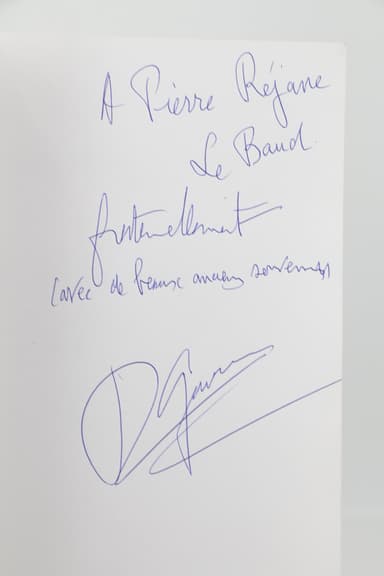 A Pierre Réjane
Le Baud
fraternellement
(avec de beaux anciens souvenirs)